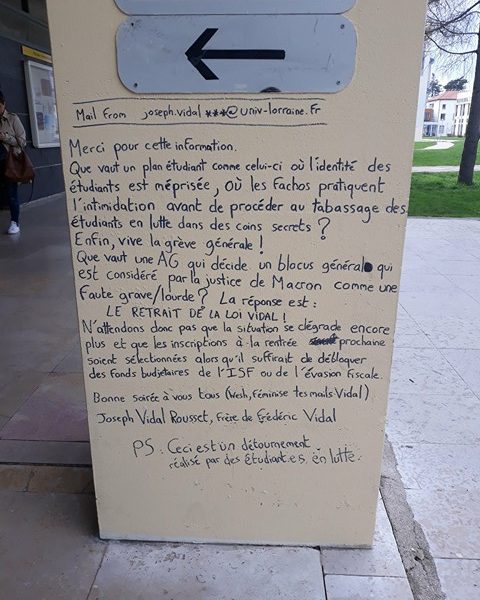 Mail from joseph.vidal ***@univ-lorraine.fr
Merci pour cette information.
Que vaut un plan étudiant comme celui-ci où l'identité des
étudiants est méprisée, où les fachos pratiquent
l'intimidation avant de procéder au tabassage des
étudiants en lutte dans des coins secrets ?
Enfin, vive la grève générale !
Que vaut une AG qui décide un blocus général qui
est considéré par la justice de Macron comme une
faute grave/lourde ? La réponse est :
LE RETRAIT DE LA LOI VIDAL !
N'attendons donc pas que la situation se dégrade encore
plus et que les inscriptions à la rentrée prochaine
soient sélectionnées alors qu'il suffirait de débloquer
des fonds budgétaires de l'ISF ou de l'évasion fiscale.
Bonne soirée à vous tous (Wesh, féminise tes mails Vidal)
Joseph Vidal Rousset, frère de Frédéric Vidal
PS : Ceci est un détournement
réalisé par des étudiant.e.s. en lutte.